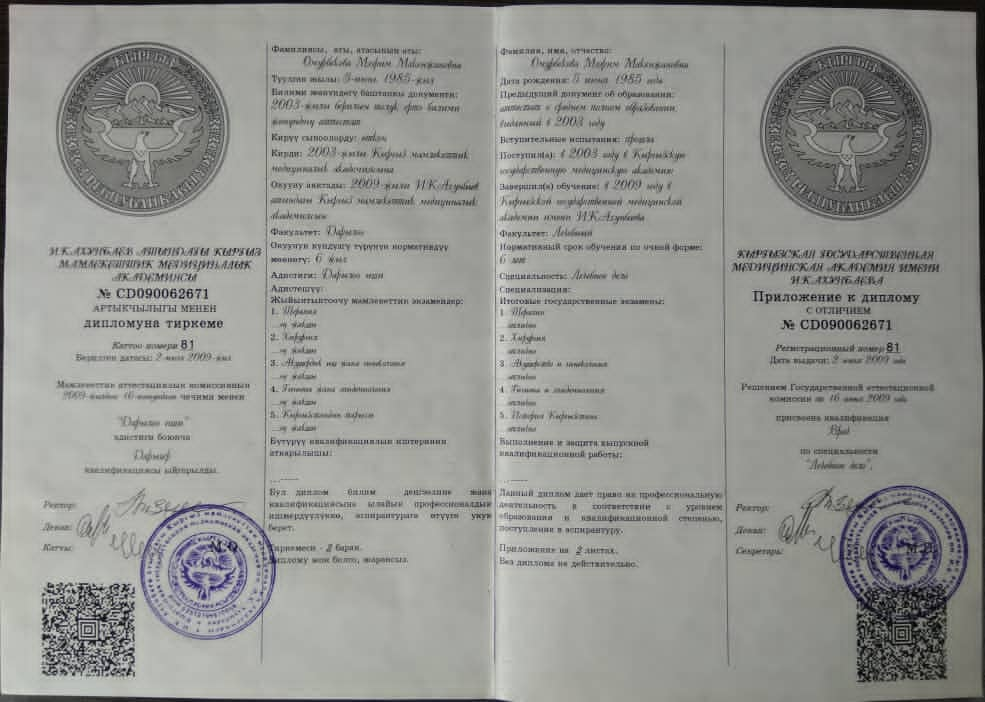 КЫРГЫЗ
РЕСПУБЛИКАСЫ
И.К.АХУНБАЕВ АТЫНДАГЫ КЫРГЫЗ
МАМЛЕКЕТТИК МЕДИЦИНАЛЫК
АКАДЕМИЯСЫ
№ CD090062671
АРТЫКЧЫЛЫГЫ МЕНЕН
дипломуна тиркеме
Каттоо номери 81
Берилген датасы: 2-июль 2009-жыл
Мамлекеттик аттестациялык комиссиянын
2009-жылдын 16-июнундагы чечими менен
"Дарылоо иши"
адистиги боюнча
Дарыгер
квалификациясы ыйгарылды.
Ректор:
Декан:
Катчы:
М.О.
Фамилиясы, аты, атасынын аты:
Туулган жылы: 5-июнь 1985-жыл
Билими жөнүндөгү баштапкы документи:
2003-жылы берилген толук орто билими
жөнүндөгү аттестат
Кирүү сыноолору: өткөн
Кирди: 2003-жылы Кыргыз мамлекеттик
медициналык академиясына
Окууну аяктады: 2009-жылы И.К.Ахунбаев
атындагы Кыргыз мамлекеттик медициналык
академиясын
Факультет: Дарылоо
Окуунун күндүзгү түрүнүн нормативдүү
мөөнөтү: 6 жыл
Адистиги: Дарылоо иши
Адистешүү:
Жыйынтыктоочу мамлекеттик экзамендер:
1. Терапия
...эң жакшы
2. Хирургия
...эң жакшы
3. Акушердик иш жана гинекология
...эң жакшы
4. Гигиена жана эпидемиология
...эң жакшы
5. Кыргызстандын тарыхы
...эң жакшы
Бүтүрүү квалификациялык иштеринин
аткарылышы:
...------
Бул диплом билим деңгээлине жана
квалификациясына ылайык профессионалдык
ишмердүүлүккө, аспирантурага өтүүгө укук
берет.
Тиркемеси - 2 барак.
Диплому жок болсо, жараксыз.
Фамилия, имя, отчество:
Дата рождения: 5 июня 1985 года
Предыдущий документ об образовании:
аттестат о среднем полном образовании,
выданный в 2003 году
Вступительные испытания: прошла
Поступил(а): в 2003 году в Кыргызскую
государственную медицинскую академию
Завершил(а) обучение: в 2009 году в
Кыргызской государственной медицинской
академии имени И.К.Ахунбаева
Факультет: Лечебный
Нормативный срок обучения по очной форме:
6 лет
Специальность: Лечебное дело
Специализация:
Итоговые государственные экзамены:
1. Терапия
...отлично
2. Хирургия
...отлично
3. Акушерство и гинекология
...отлично
4. Гигиена и эпидемиология
...отлично
5. История Кыргызстана
...отлично
Выполнение и защита выпускной
квалификационной работы:
...------
Данный диплом дает право на профессиональную
деятельность в соответствии с уровнем
образования и квалификационной степенью,
поступление в аспирантуру.
Приложение на 2 листах.
Без диплома не действительно.
КЫРГЫЗ
РЕСПУБЛИКАСЫ
КЫРГЫЗСКАЯ ГОСУДАРСТВЕННАЯ
МЕДИЦИНСКАЯ АКАДЕМИЯ ИМЕНИ
И.К.АХУНБАЕВА
Приложение к диплому
С ОТЛИЧИЕМ
№ CD090062671
Регистрационный номер 81
Дата выдачи: 2 июля 2009 года
Решением Государственной аттестационной
комиссии от 16 июня 2009 года
присвоена квалификация
Врач
по специальности
"Лечебное дело".
Ректор:
Декан:
Секретарь:
М.П.